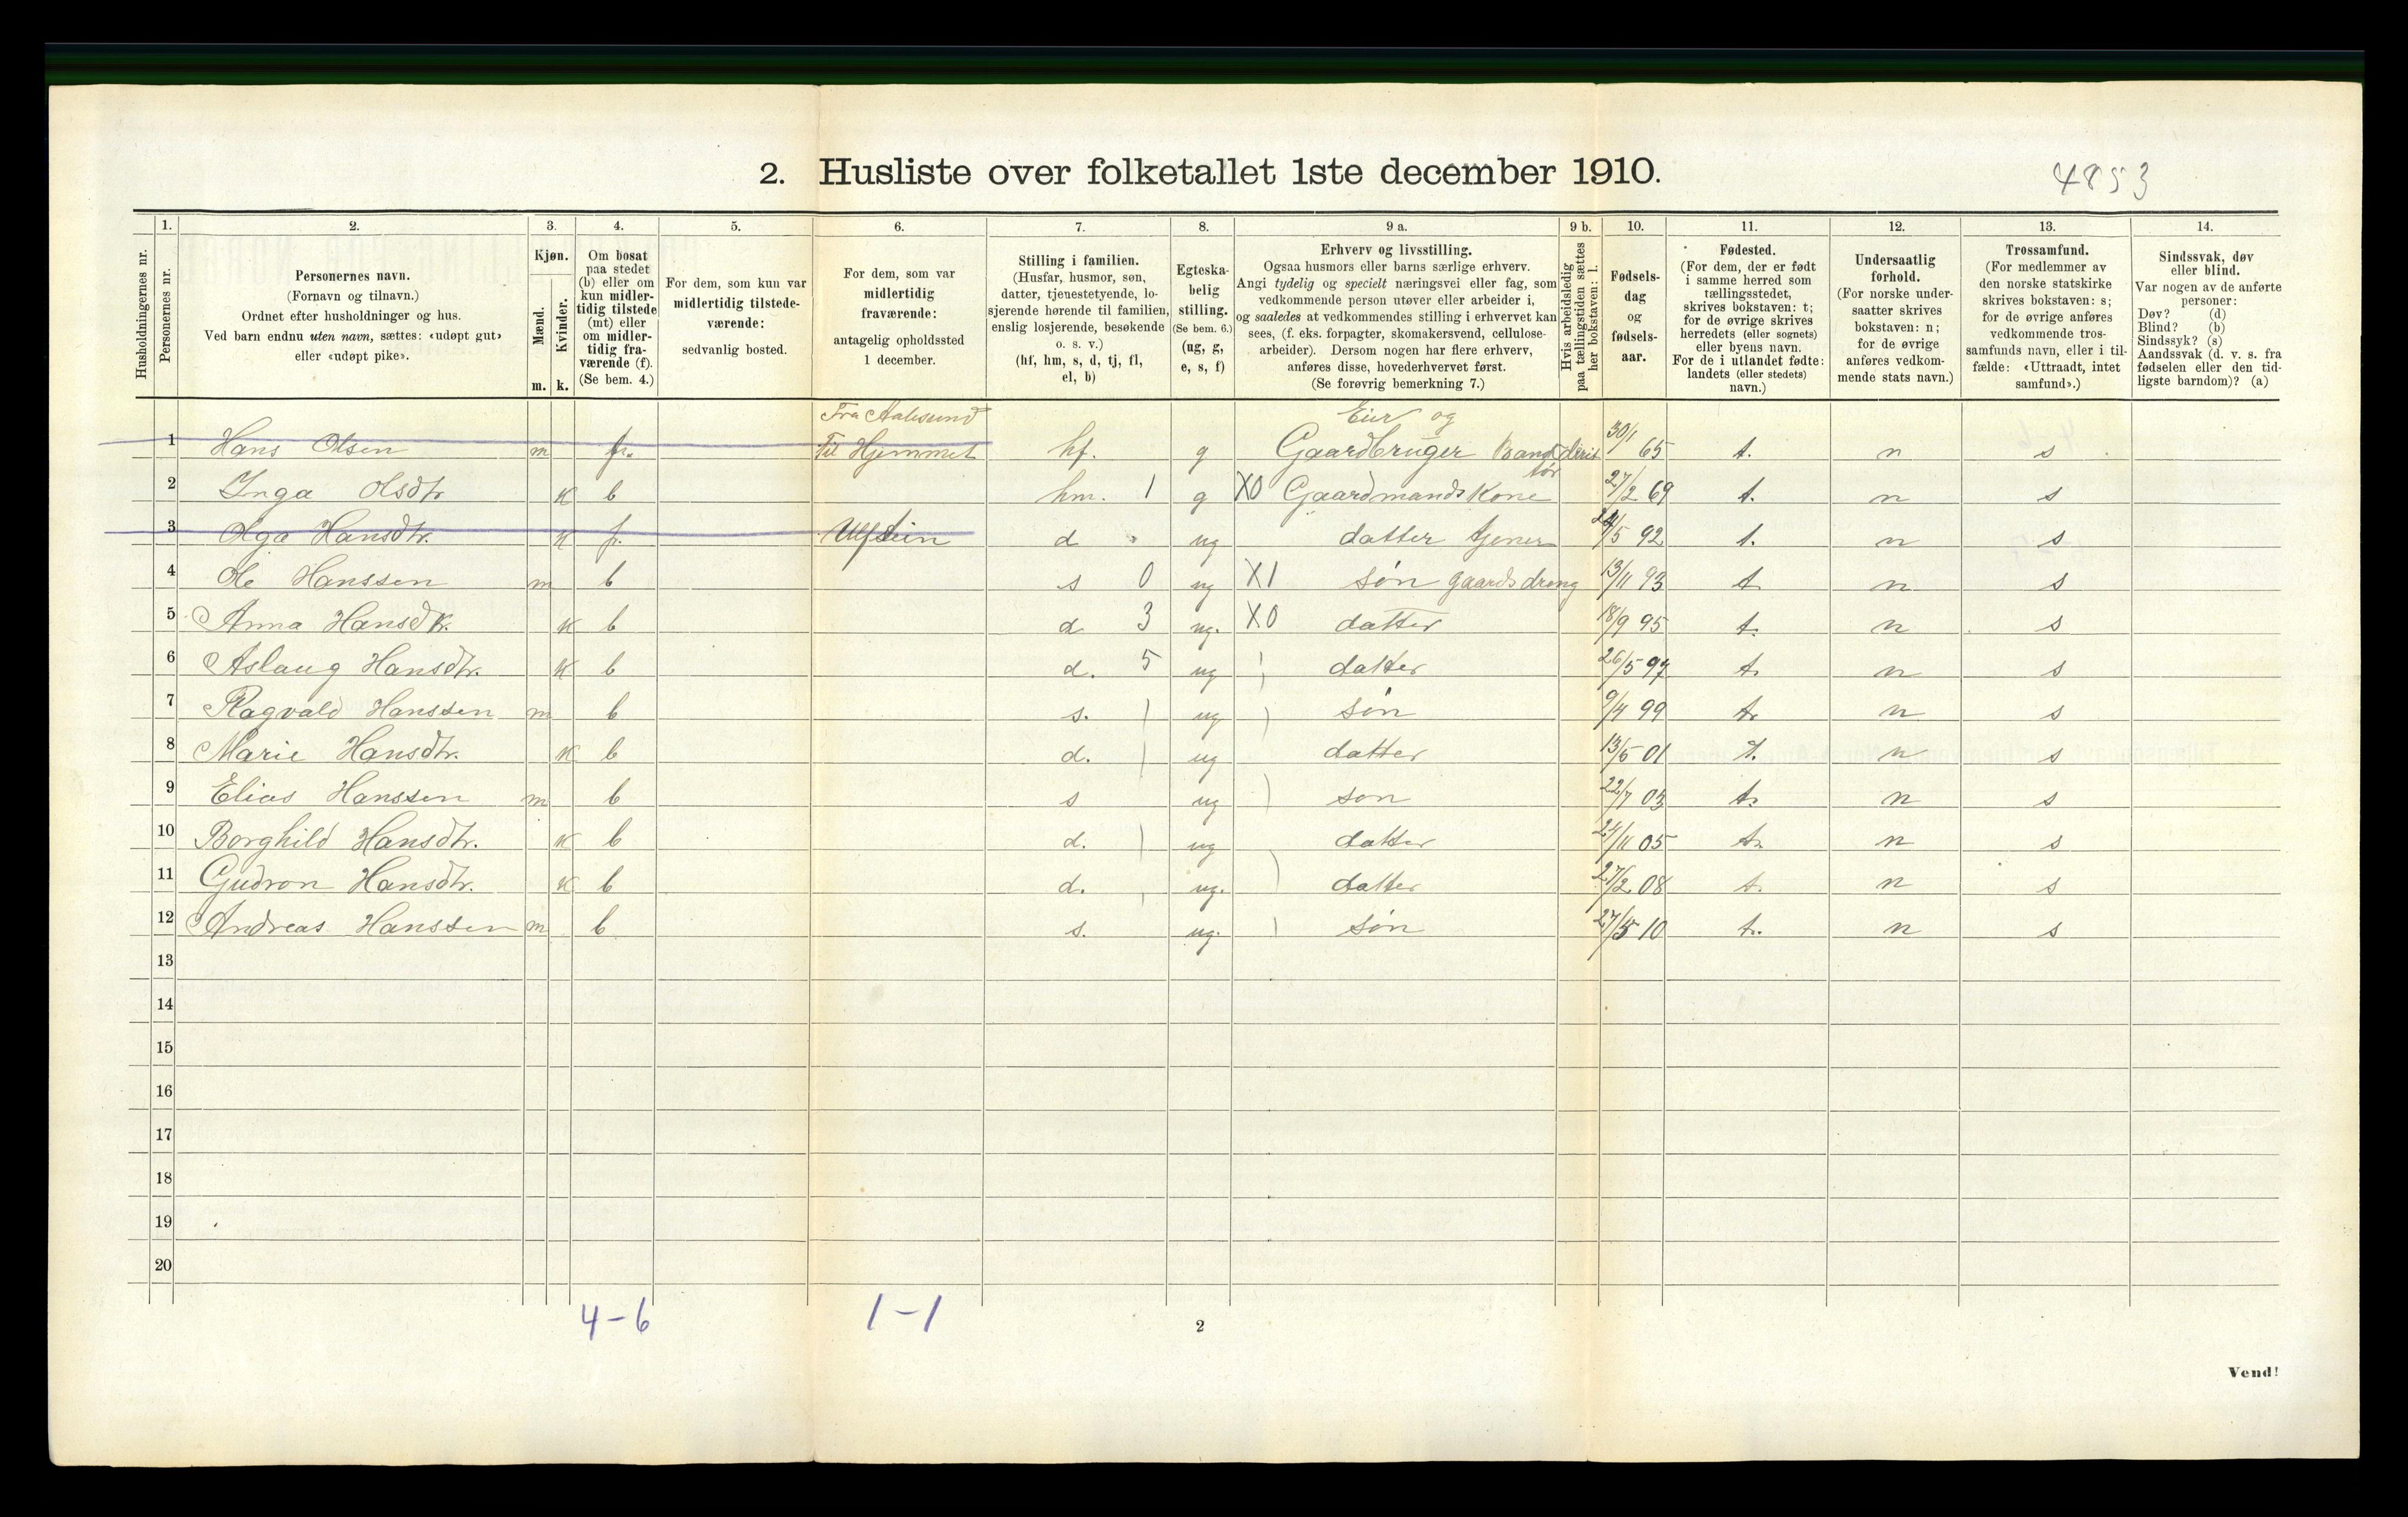 2. Husliste over folketallet 1ste december 1910.
4853
Husholdningernes nr.
1.
Personernes nr.
2.
Personernes navn.
(Fornavn og tilnavn.)
Ordnet efter husholdninger og hus.
Ved barn endnu uten navn, sættes: «udøpt gut»
eller «udøpt pike».
3.
Kjøn.
Mænd.
m.
Kvinder.
k.
4.
Om bosat
paa stedet
(b) eller om
kun midler-
tidig tilstede
(mt) eller
om midler-
tidig fra-
værende (f).
(Se bem. 4.)
5.
For dem, som kun var
midlertidig tilstede-
værende:
sedvanlig bosted.
6.
For dem, som var
midlertidig
fraværende:
antagelig opholdssted
1 december.
7.
Stilling i familien.
(Husfar, husmor, søn,
datter, tjenestetyende, lo-
sjerende hørende til familien,
enslig losjerende, besøkende
o. s. v.)
(hf, hm, s, d, tj, fl,
el, b)
8.
Egteska-
belig
stilling.
(Se bem. 6.)
(ug, g,
e, s, f)
9 a.
Erhverv og livsstilling.
Ogsaa husmors eller barns særlige erhverv.
Angi tydelig og specielt næringsvei eller fag, som
vedkommende person utøver eller arbeider i,
og saaledes at vedkommendes stilling i erhvervet kan
sees, (f. eks. forpagter, skomakersvend, cellulose-
arbeider). Dersom nogen har flere erhverv,
anføres disse, hovederhvervet først.
(Se forøvrig bemerkning 7.)
9 b.
Hvis arbeidsledig
paa tællingstiden sættes
her bokstaven: l.
10.
Fødsels-
dag
og
fødsels-
aar.
11.
Fødested.
(For dem, der er født
i samme herred som
tællingsstedet,
skrives bokstaven: t;
for de øvrige skrives
herredets (eller sognets)
eller byens navn.
For de i utlandet fødte:
landets (eller stedets)
navn.)
12.
Undersaatlig
forhold.
(For norske under-
saatter skrives
bokstaven: n;
for de øvrige
anføres vedkom-
mende stats navn.)
13.
Trossamfund.
(For medlemmer av
den norske statskirke
skrives bokstaven: s;
for de øvrige anføres
vedkommende tros-
samfunds navn, eller i til-
fælde: «Uttraadt, intet
samfund».)
14.
Sindssvak, døv
eller blind.
Var nogen av de anførte
personer:
Døv? (d)
Blind? (b)
Sindssyk? (s)
Aandssvak (d. v. s. fra
fødselen eller den tid-
ligste barndom)? (a)
Fra Aalesund Eier og
1 Hans Olsen m fr. Til Hjemmet hf. g Gaardbruger 30/1 65 t. n s
2 Inga Olsdtr K b hm. 1 g X0 Gaardmands Kone 27/2 69 t. n s
3 Olga Hansdtr. K f. Ulfstein d ug datter tjener /5 92 t. n s
4 Ole Hanssen m b s 0 ug X1 søn gaardsdreng 13/11 93 t n s
5 Anna Hansdtr. K b d 3 ug. X0 datter 18/9 95 t. n s
6 Aslaug Hansdtr. K b d. 5 ug datter 26/5 97 t. n s
7 Ragvald Hanssen m b s. ug søn 9/4 99 t. n s
8 Marie Hansdtr. K b d. ug datter 13/5 01 t. n s
9 Elias Hanssen m b s ug son 22/7 03 t. n s
10 Borghild Hansdtr. K b d. ug datter 24/11 05 t. n s
11 Gudron Hansdtr. K b d. ug. datter 27/2 08 t. n s
12 Andreas Hanssen m b s. ug. søn 27/5 10 t. n s
13
14
15
16
17
18
19
20
4-6 1-1
2
Vend!